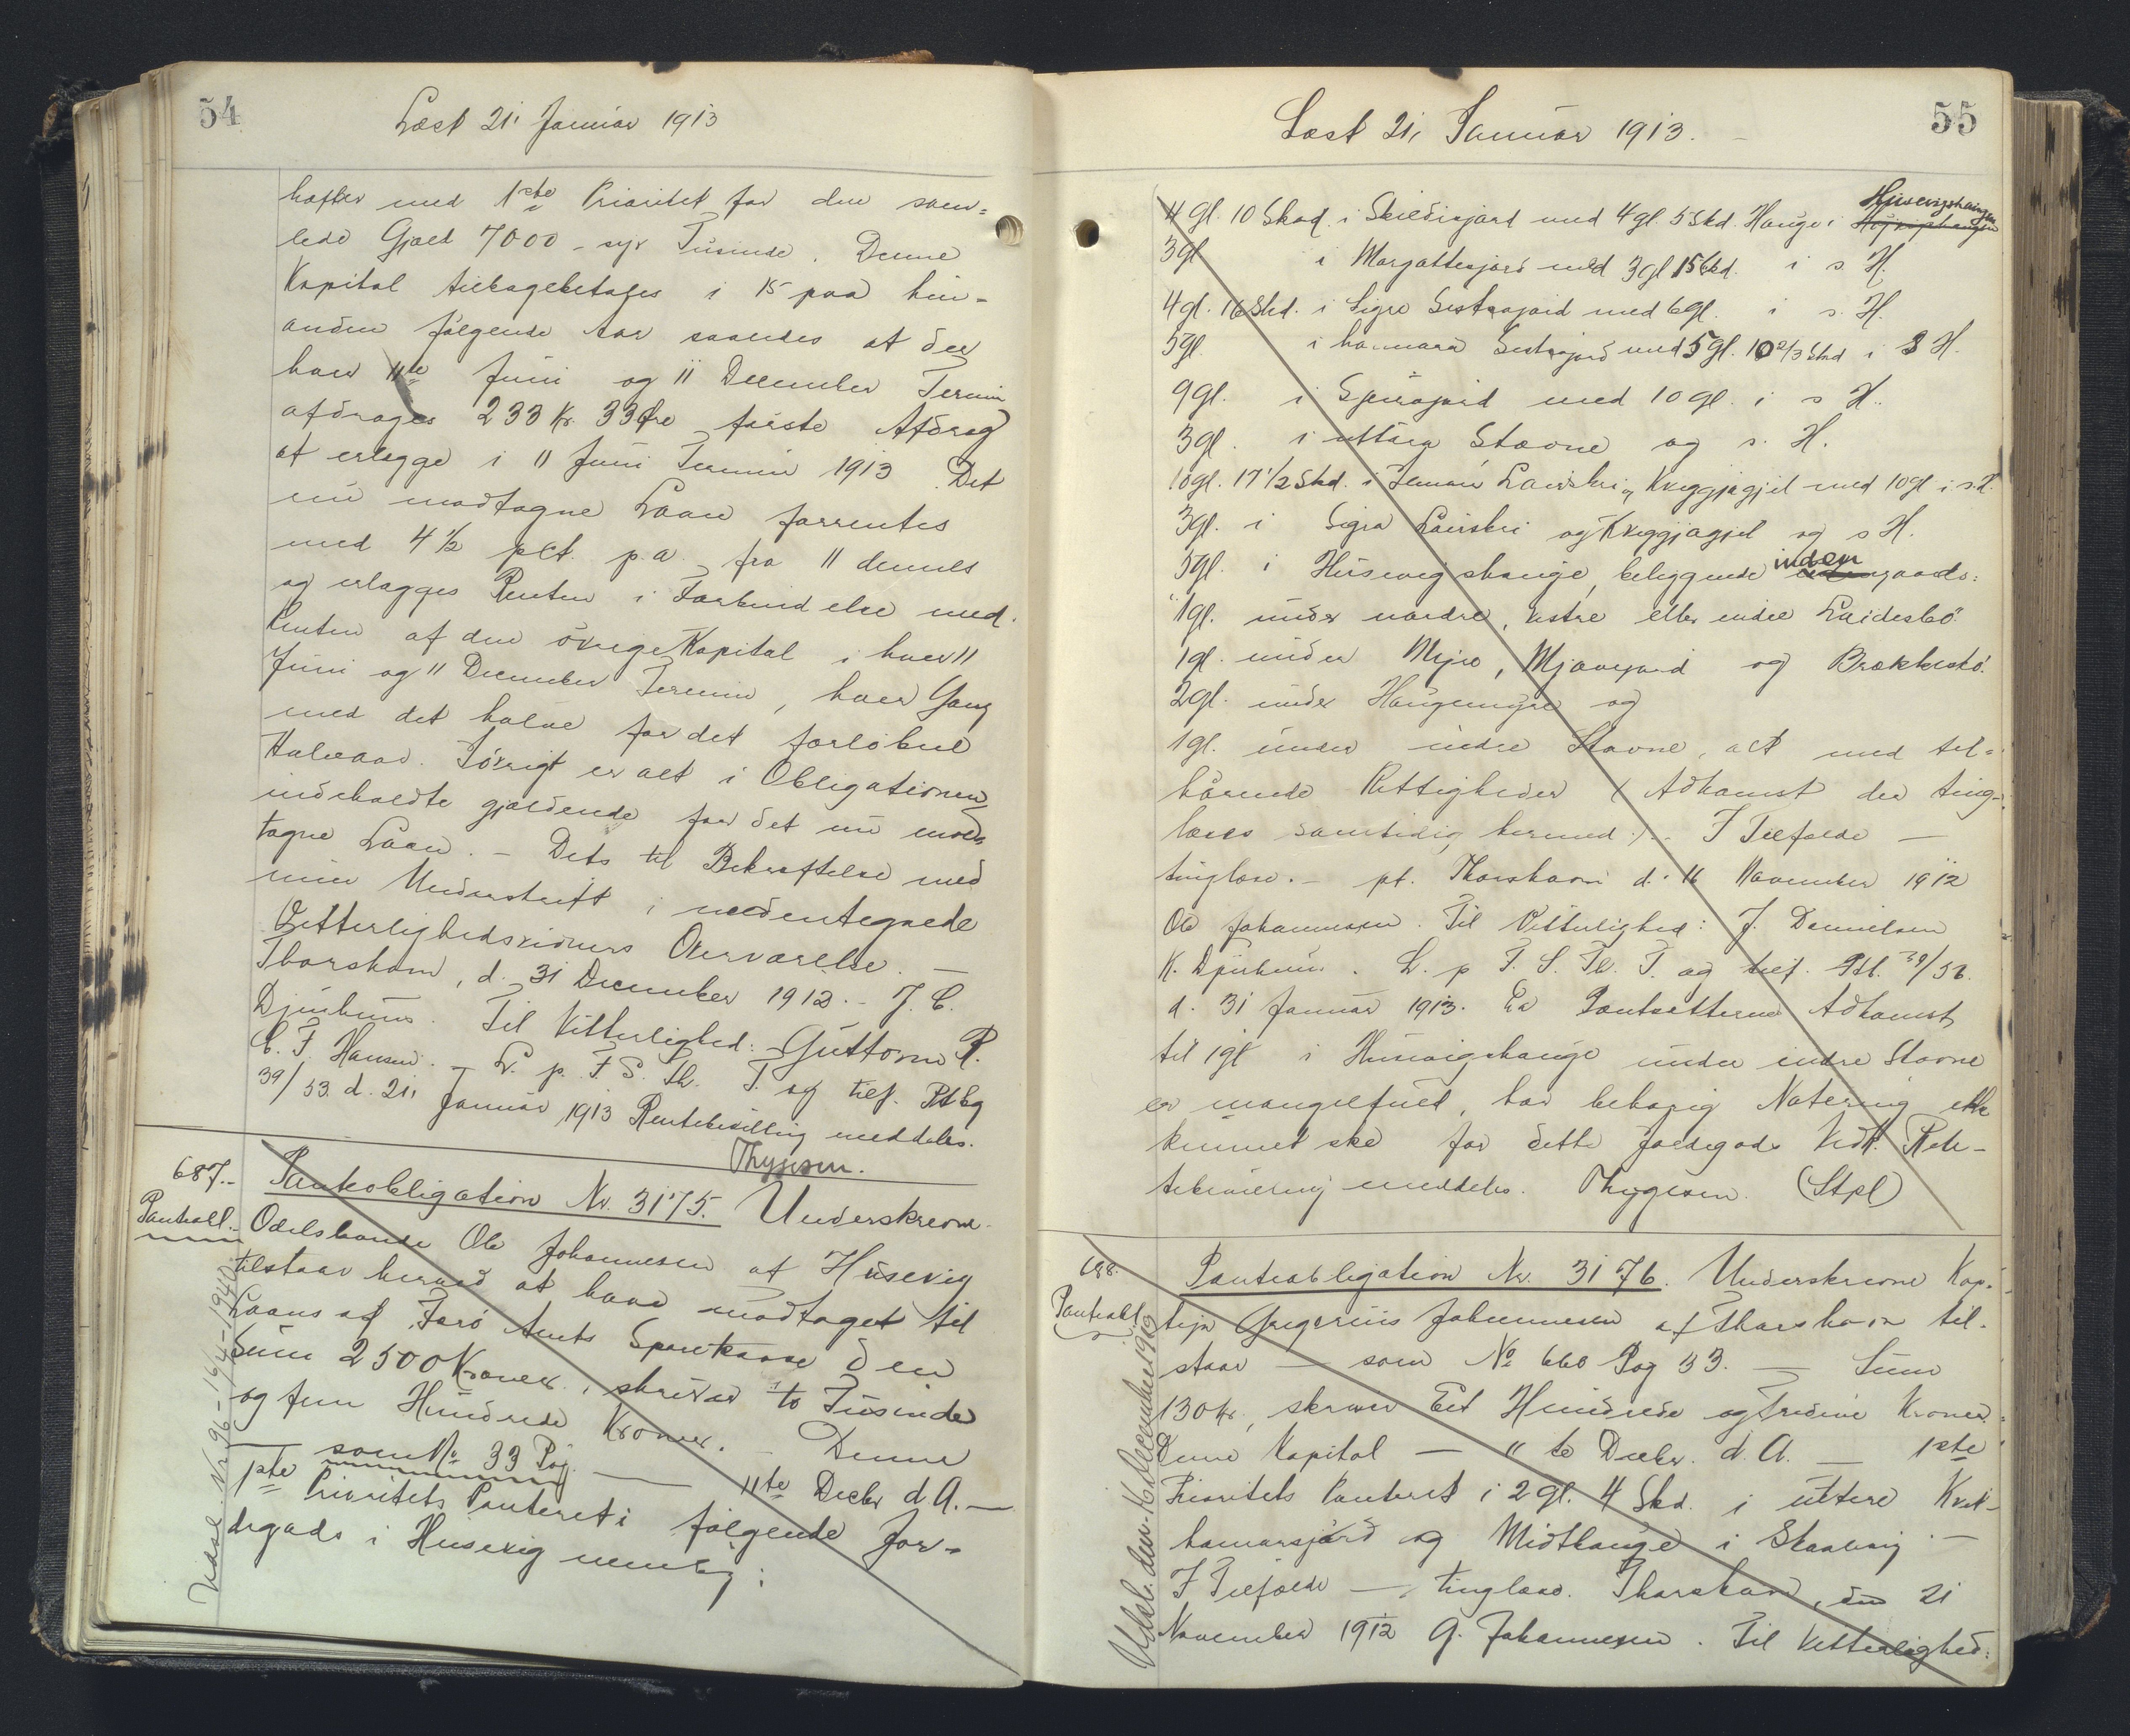 54
Læst 21. Januar 1913
hæfter med 1ste Prioritet for den sam=
lede Gjæld 7000 - syv Tusinde. Denne
Kapital tilbagebetales i 15 paa hin=
anden følgende Aar saaledes at der
hver 11te Juni og 11 December Termin
afdrages 233 Kr. 33 Øre første Afdrag
at erlægge i 11 Juni Termin 1913. Det
nu modtagne Laan forrentes
med 4 1/2 pct. p.a. fra 11 dennes
og erlægges Renten i Forbindelse med
Renten af den øvrige Kapital i hver 11
Juni og 11 December Termin, hver Gang
med det halve for det forløbne
Halvaar. Iøvrigt er alt i Obligationen
indeholdte gjældende for det nu mod=
tagne Laan. - Dets til Bekræftelse med
min Underskrift i nedentegnede
Vitterlighedsvidners Overværelse. -
Thorshavn, d. 31 December 1912. - J. C.
Djurhuus. Til Vitterlighed: Guttorm P.
C. F. Hansen. - L. p. F. S. Th. T. og tilf. Ptbg
39/53. d. 21. Januar 1913 Rentebevilling meddeles.
Thygesen.
687.-
Panteobl.
Panteobligation Nr. 3175. Underskrevne
Odelsbonde Ole Johannesen af Husevig
tilstaar herved at have modtaget til
Laans af Færø Amts Sparekasse den
Sum 2500 Kroner, skriver to Tusinde
og fem Hundrede Kroner. - Denne
— som No. 33 Pag. — 11te Decbr d. A. —
1ste Prioritets Panteret i følgende Jor-
degods i Husevig nemlig:
Udsl. Nr. 96 - 16/4 - 1940
55
Læst 21. Januar 1913. -
4 gl. 10 Skd. i Skieldisjørd med 4 gl. 5 Skd. Hauge i Husevigshaugen
3 gl i Morgattesjørd med 3 gl 15 Skd. i s. H.
4 gl. 16 Skd. i Sigre Sestrajørd med 6 gl. i s. H.
5 gl. i hammara Sestrajørd med 5 gl. 10 2/3 Skd i s H.
9 gl. i Spurajørd med 10 gl. i s H.
3 gl. i uttara Stovne og s. H.
10 gl. 17 1/2 Skd. i Lauiskri og Kveggjagjil med 10 gl i s. H.
3 gl. i Sigra Lauiskri og Kveggjagjil og s H.
5 gl. i Husevigshauge, beliggende inden gaards:
1 gl. under nordre, vestre eller indre Laidesbø
1 gl. under Myre, Mjaagard og Brekkesbø
2 gl. under Haugemyre og
1 gl. under indre Stovne, alt med til=
hørende Rettigheder (Adkomst der ting-
læses samtidig hermed). - I Tilfælde —
tinglæse. - pt. Thorshavn d. 16 November 1912
Ole Johannesen. Til Vitterlighed: J. Danielsen
K. Djurhuus. L. p F. S. Th. T. og tilf. Ptb. 39/52.
d. 31 Januar 1913. Da Pantsætterens Adkomst
til 1 gl i Husevigshauge under indre Stovne
er mangelfuld, har behørig Notering ikke
kunnet ske for dette Jordegods Vedk. Ren-
tebevilling meddeles. Thygesen. (Stpl)
688.
Panteobl.
Panteobligation Nr. 3176. Underskrevne Kap-
tejn Gregorius Johannesen af Thorshavn til-
staar — som No 660 Pag 33. — Sum
130 Kr., skriver Eet Hundrede og Tredive Kroner.
Denne Kapital — 11te Decbr. d. A. — 1ste
Prioritets Panteret i 2 gl. 4 Skd. i uttere Kvit-
hamarsjørd og Midthauge i Skaalevig. -
I Tilfælde — tinglæse. Thorshavn, den 21
November 1912 G. Johannesen. Til Vitterlighed:
Udsl. den 16 December 1919